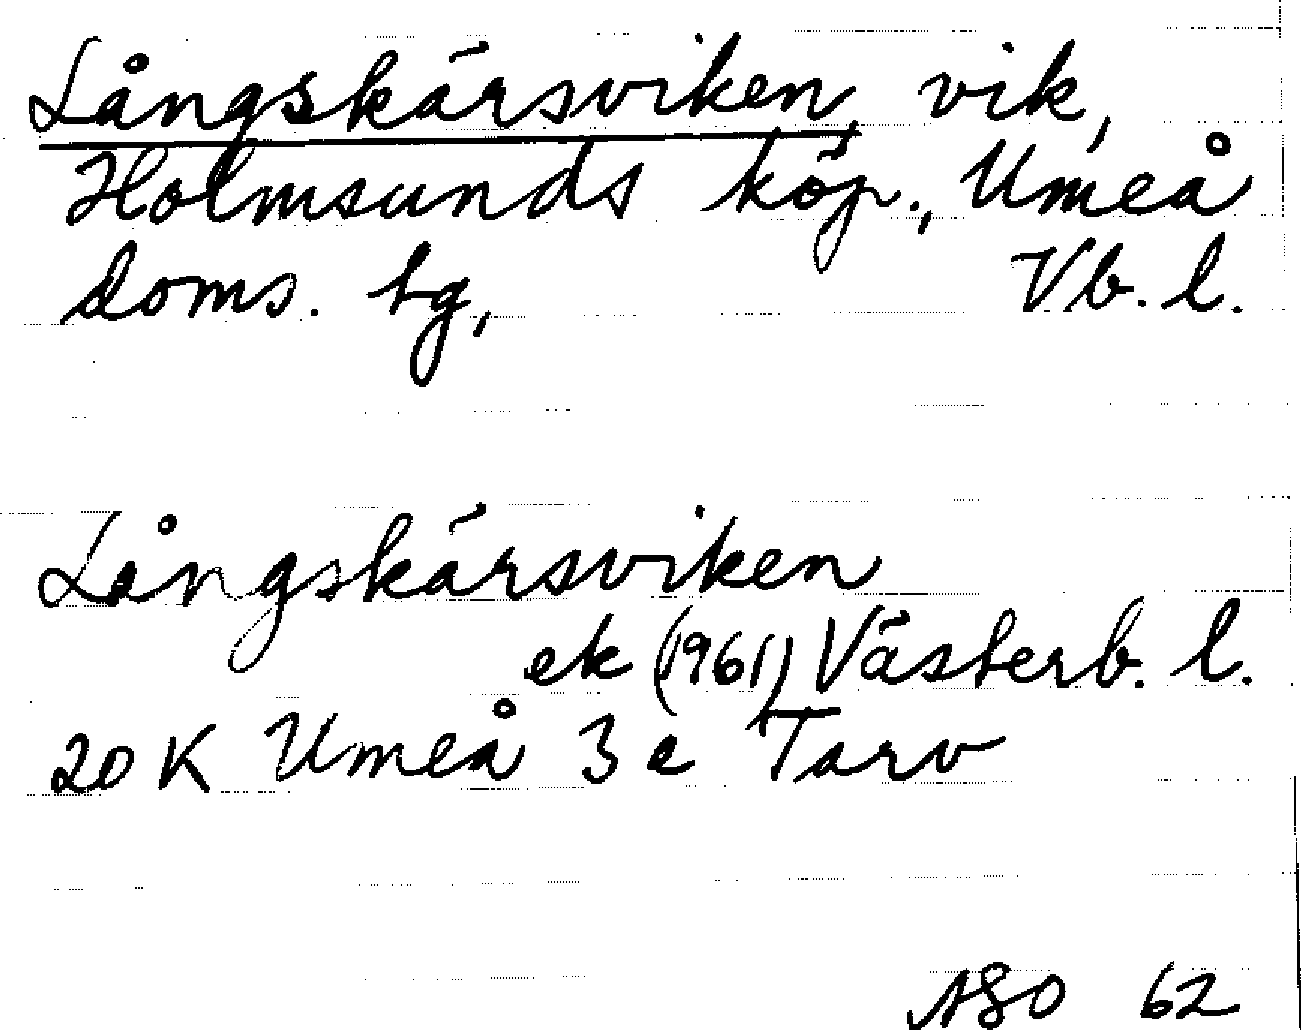 Långskärsviken, vik,
Holmsunds köp., Umeå
doms. tg, Vb. l.
Långskärsviken
ek (1961) Västerb. l.
20 K Umeå 3 c Tarv
ASO 62